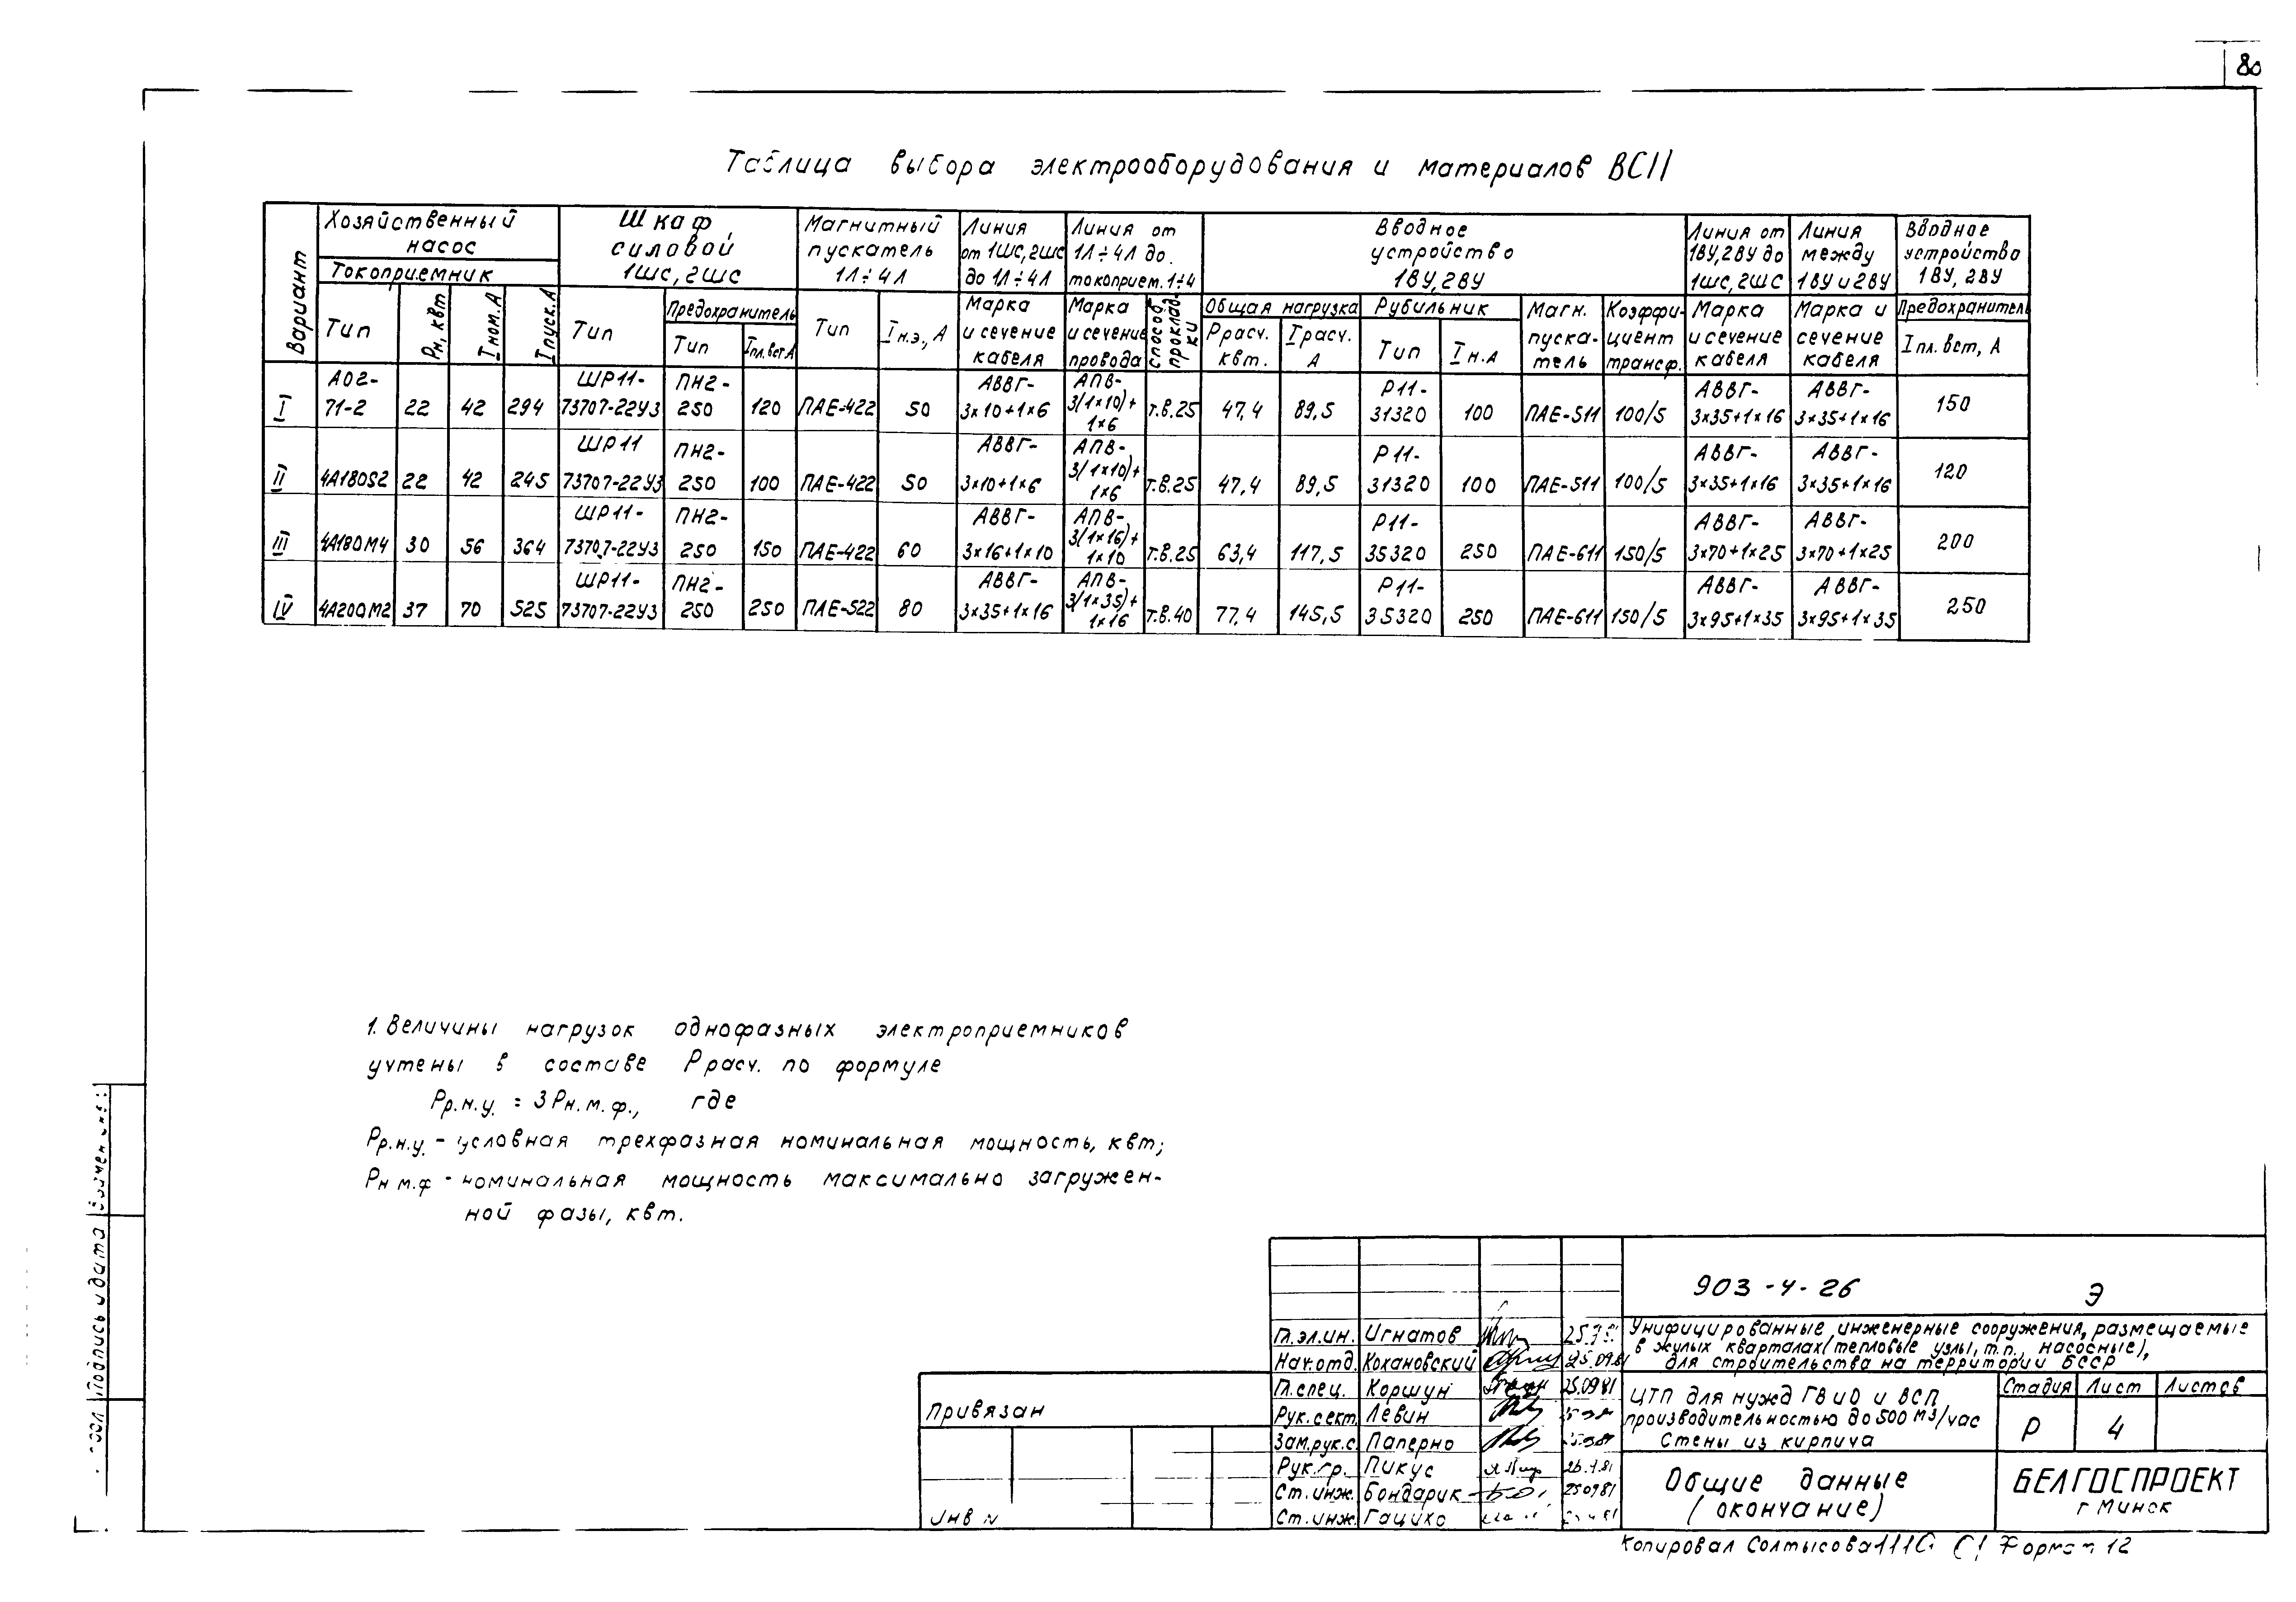 80
Таблица выбора электрооборудования и материалов ВСП
Вариант
Хозяйственный насос
Токоприемник
Тип
Рн, квт
Iном. А
Iпуск. А
Шкаф силовой 1ШС, 2ШС
Тип
Предохранитель
Тип
Iпл.вст.А
Магнитный пускатель 1Л÷4Л
Тип
Iн.э., А
Линия от 1ШС, 2ШС до 1Л÷4Л
Марка и сечение кабеля
Линия от 1Л÷4Л до токоприем. 1÷4
Марка и сечение провода
способ прокладки
Вводное устройство 1ВУ, 2ВУ
Общая нагрузка
Ррасч. квт.
Iрасч. А
Рубильник
Тип
Iн.А
Магн. пуска-тель
Коэффи-циент трансф.
Линия от 1ВУ, 2ВУ до 1ШС, 2ШС
Марка и сечение кабеля
Линия между 1ВУ и 2ВУ
Марка и сечение кабеля
Вводное устройство 1ВУ, 2ВУ
Предохранитель
Iпл. вст, А
I АО2-71-2 22 42 294 ШР11-73707-22У3 ПН2-250 120 ПАЕ-422 50 АВВГ-3×10+1×6 АПВ-3(1×10)+1×6 т.в.25 47,4 89,5 Р11-31320 100 ПАЕ-511 100/5 АВВГ-3×35+1×16 АВВГ-3×35+1×16 150
II 4А180S2 22 42 245 ШР11 73707-22У3 ПН2-250 100 ПАЕ-422 50 АВВГ-3×10+1×6 АПВ-3(1×10)+1×6 т.в.25 47,4 89,5 Р11-31320 100 ПАЕ-511 100/5 АВВГ-3×35+1×16 АВВГ-3×35+1×16 120
III 4А180М4 30 56 364 ШР11-73707-22У3 ПН2-250 150 ПАЕ-422 60 АВВГ-3×16+1×10 АПВ-3(1×16)+1×10 т.в.25 63,4 117,5 Р11-35320 250 ПАЕ-611 150/5 АВВГ-3×70+1×25 АВВГ-3×70+1×25 200
IV 4А200М2 37 70 525 ШР11-73707-22У3 ПН2-250 250 ПАЕ-522 80 АВВГ-3×35+1×16 АПВ-3(1×35)+1×16 т.в.40 77,4 145,5 Р11-35320 250 ПАЕ-611 150/5 АВВГ-3×95+1×35 АВВГ-3×95+1×35 250
1. Величины нагрузок однофазных электроприемников
учтены в составе Ррасч. по формуле
Рр.н.у. = 3Рн.м.ф., где
Рр.н.у. - условная трехфазная номинальная мощность, квт;
Рн м.ф - номинальная мощность максимально загружен-
ной фазы, квт.
Подпись и дата
Привязан
Инв N
Гл.эл.ин. Игнатов
Нач.отд. Кохановский 25.09.81
Гл.спец. Коршун 25.0981
Рук.сект. Левин
Зам.рук.с. Паперно
Рук.гр. Пикус
Ст.инж. Бондарик 250981
Ст.инж. Гацихо
903-4-26 Э
Унифицированные инженерные сооружения, размещаемые
в жилых кварталах (тепловые узлы, т.п., насосные),
для строительства на территории БССР
ЦТП для нужд ГВ и О и ВСП
производительностью до 500 м3/час
Стены из кирпича
Стадия Лист Листов
Р 4
Общие данные
(окончание)
БЕЛГОСПРОЕКТ
г Минск
Копировал Солтысова Формат 12